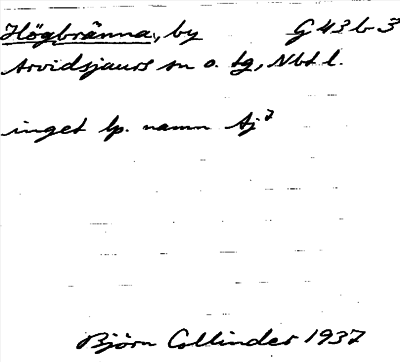 Högbränna, by G 43 b 3
Arvidsjaurs sn o. tg, Nbt l.
inget lp. namn Aj⁷
Björn Collinder 1937